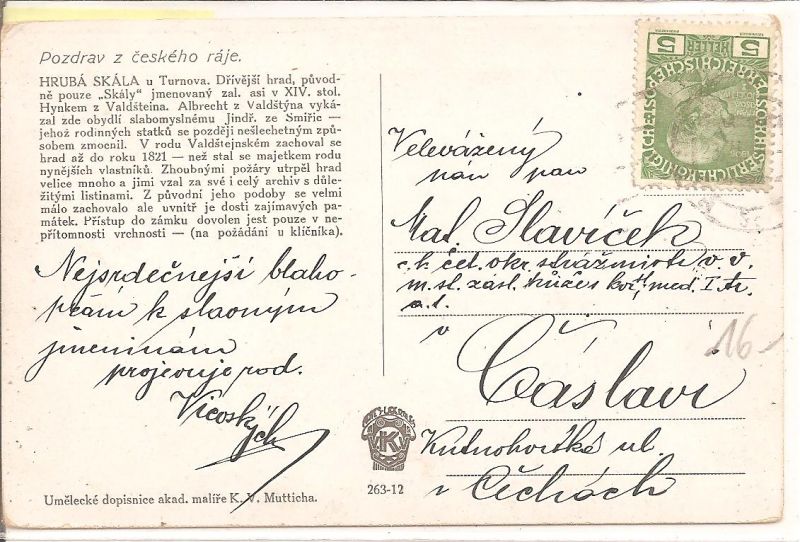 Pozdrav z českého ráje.
HRUBÁ SKÁLA u Turnova. Dřívější hrad, původ-
ně pouze „Skály" jmenovaný zal. asi v XIV. stol.
Hynkem z Valdšteina. Albrecht z Valdštýna vyká-
zal zde obydlí slabomyslnému Jindř. ze Smiřic —
jehož rodinných statků se později nešlechetným způ-
sobem zmocnil. V rodu Valdštejnském zachoval se
hrad až do roku 1821 — než stal se majetkem rodu
nynějších vlastníků. Zhoubnými požáry utrpěl hrad
velice mnoho a jimi vzal za své i celý archiv s důle-
žitými listinami. Z původní jeho podoby se velmi
málo zachovalo ale uvnitř je dosti zajímavých pa-
mátek. Přístup do zámku dovolen jest pouze v ne-
přítomnosti vrchnosti — (na požádání u klíčníka).
Nejsrdečnější blaho-
přání k slavným
jmeninám
projevuje rod.
Vícoských
Umělecké dopisnice akad. malíře K. V. Mutticha.
K
263-12
5 HELLER 5
Velevážený
pán pan
Mat. Slavíček
c. k. čet. okr. strážmistr v. v.
m. sl. zásl. kříže s med. I. tř.
a. t.
v
Čáslavi
Kutnohorská ul.
v Čechách
16.-